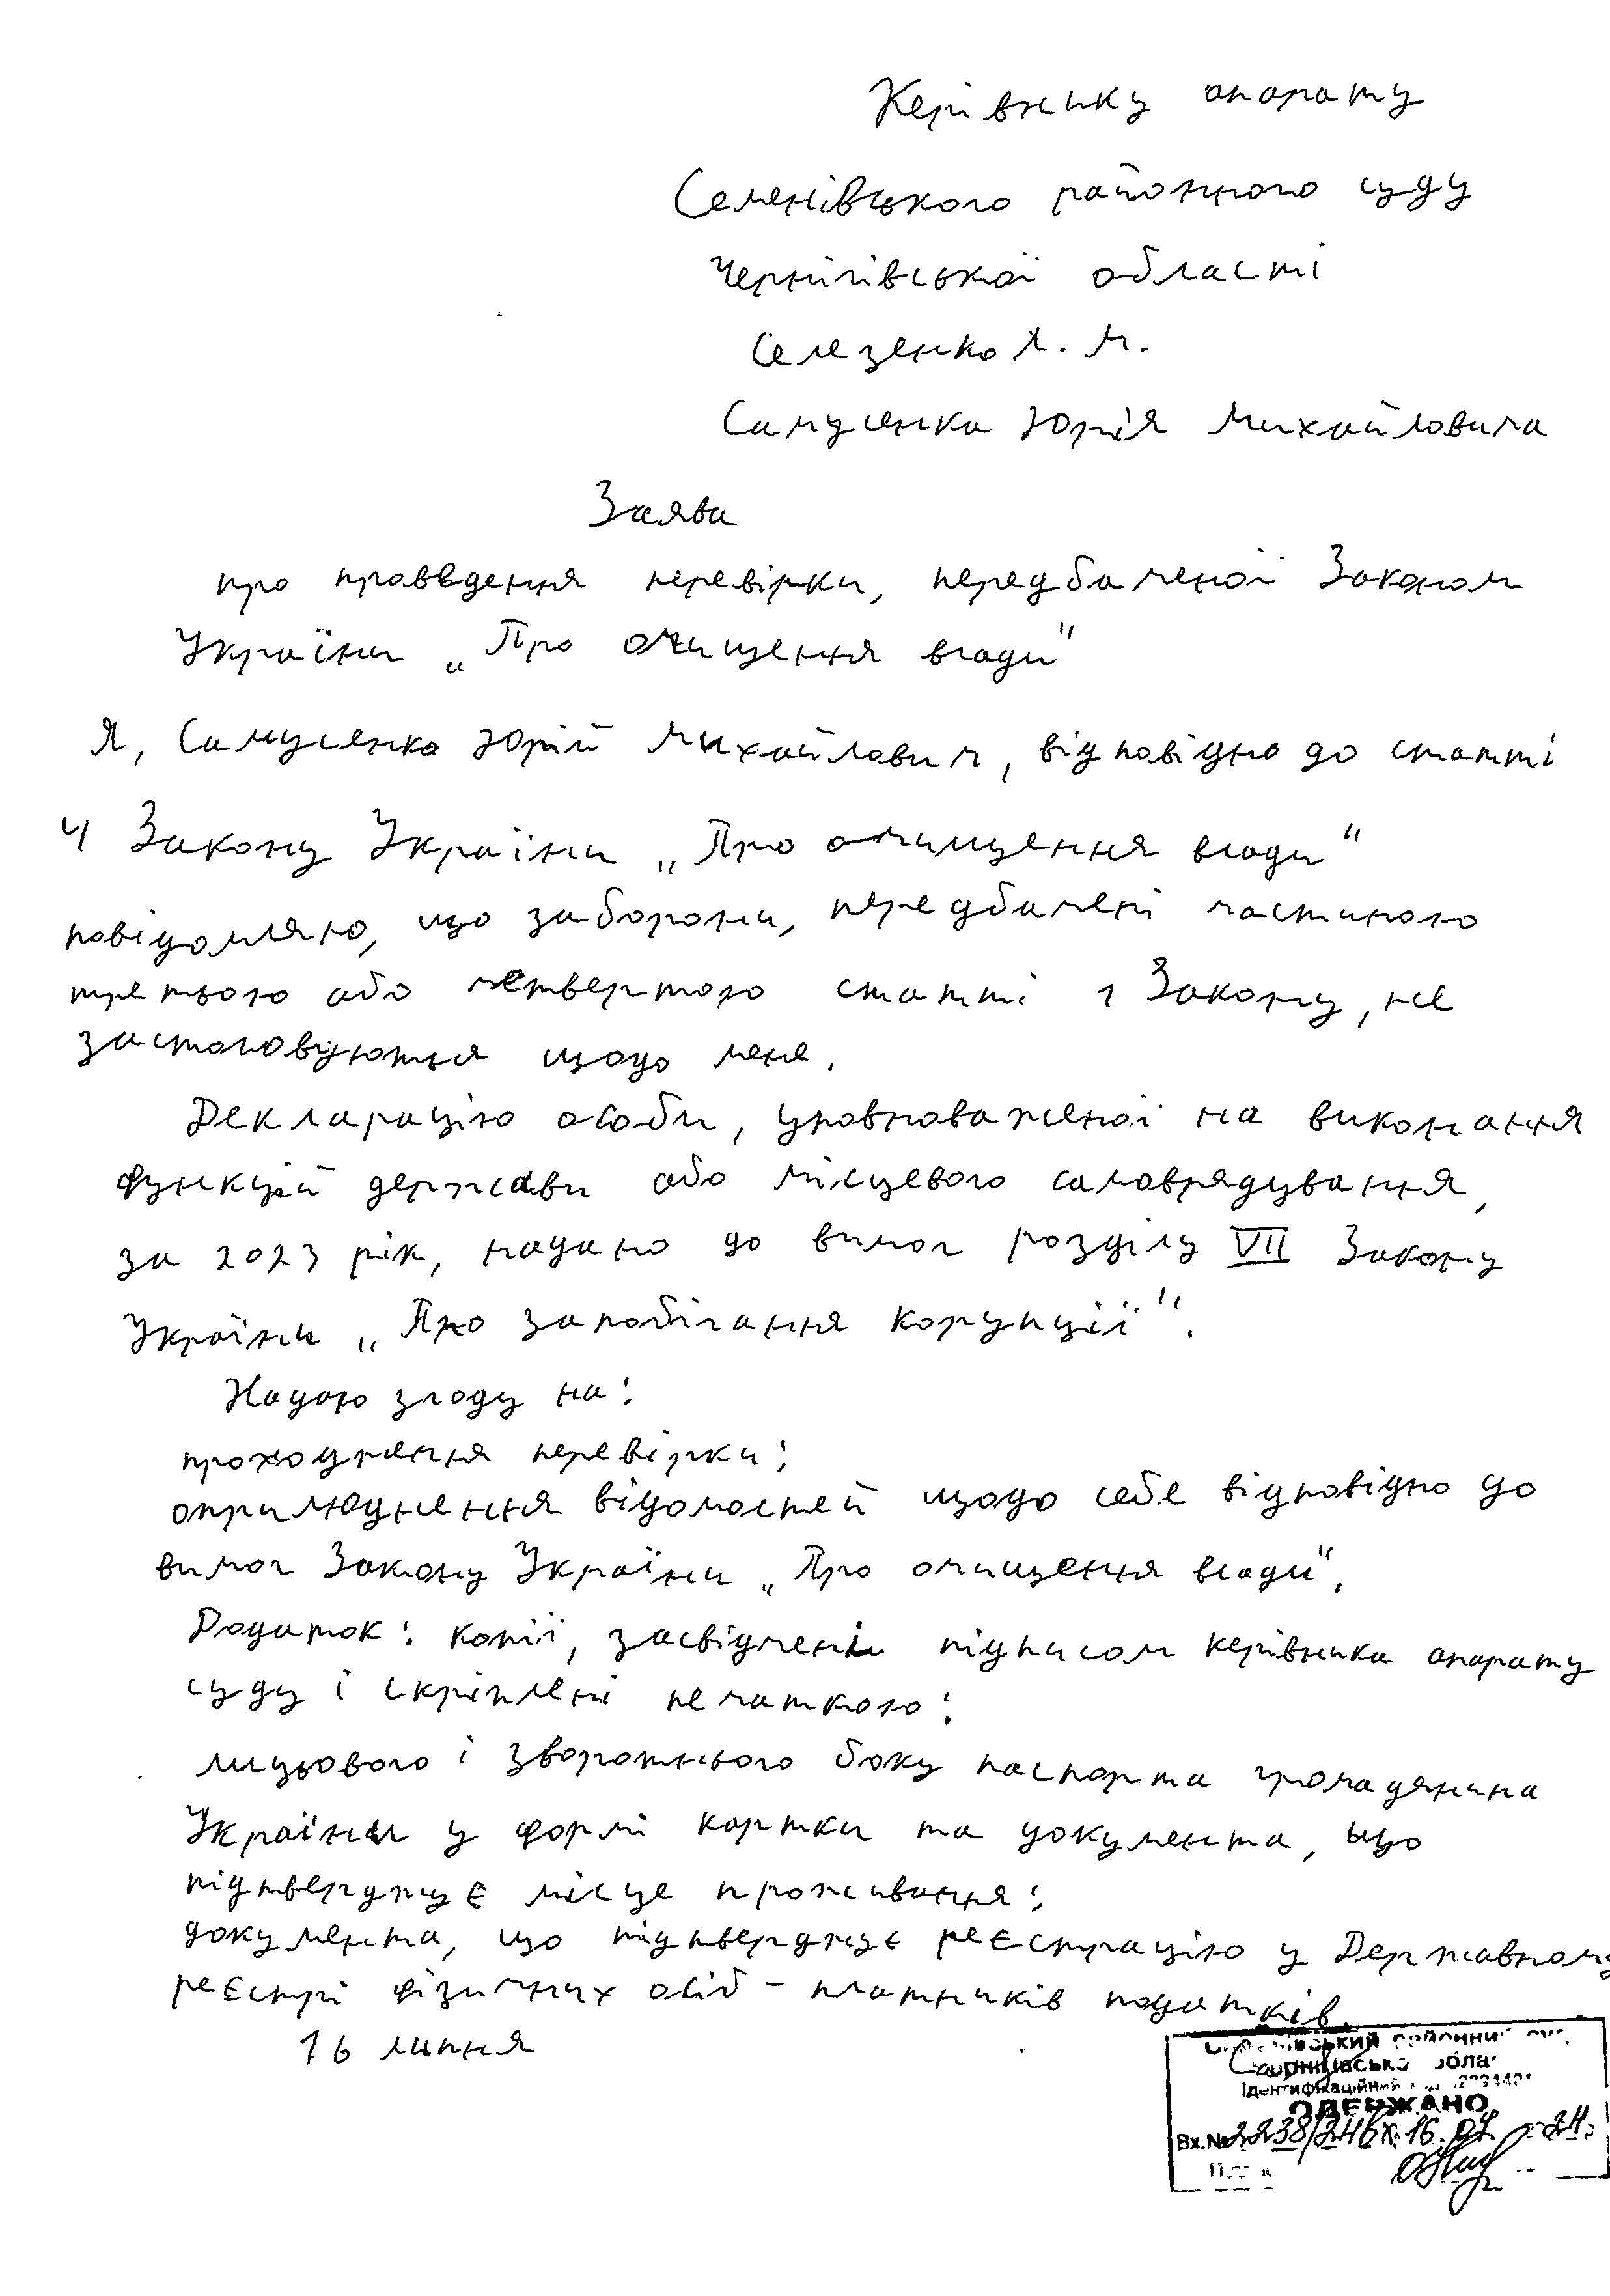 Керівнику апарату
Семенівського районного суду
Чернігівської області
Селезенко Л. М.
Самусенка Юрія Михайловича
Заява
про проведення перевірки, передбаченої Законом
України „Про очищення влади"
Я, Самусенко Юрій Михайлович, відповідно до статті
4 Закону України „Про очищення влади"
повідомляю, що заборони, передбачені частиною
третьою або четвертою статті 1 Закону, не
застосовуються щодо мене.
Декларацію особи, уповноваженої на виконання
функцій держави або місцевого самоврядування,
за 2023 рік, надано до вимог розділу VII Закону
України „Про запобігання корупції".
Надаю згоду на:
проходження перевірки;
оприлюднення відомостей щодо себе відповідно до
вимог Закону України „Про очищення влади".
Додаток: копії, засвідчені підписом керівника апарату
суду і скріплені печаткою:
лицьового і зворотнього боку паспорта громадянина
України у формі картки та документа, що
підтверджує місце проживання;
документа, що підтверджує реєстрацію у Державному
реєстрі фізичних осіб - платників податків.
16 липня
районний
Ідентифікаційний
ОДЕРЖАНО
Вх.№ 2238/24 16.07 24